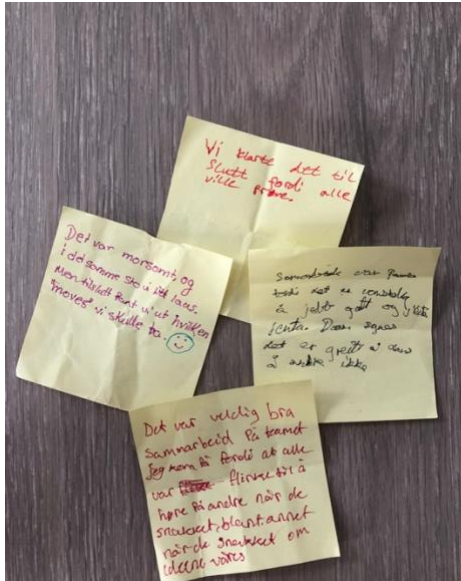 Vi klarte det til
slutt fordi alle
ville prøve.
Det var morsomt, og
i det samme sto vi litt laas.
Men tilslutt fant vi ut hvilken
"moves" vi skulle ta.
Samarbeide var
det er
å jobt gått og
jenta. Den
det er greit å
å ikke
Det var veldig bra
sammarbeid på teamet
jeg kom på fordi at alle
var flinke til å
høre på andre når de
snakket, blant annet
når de snakket om
ideene våres